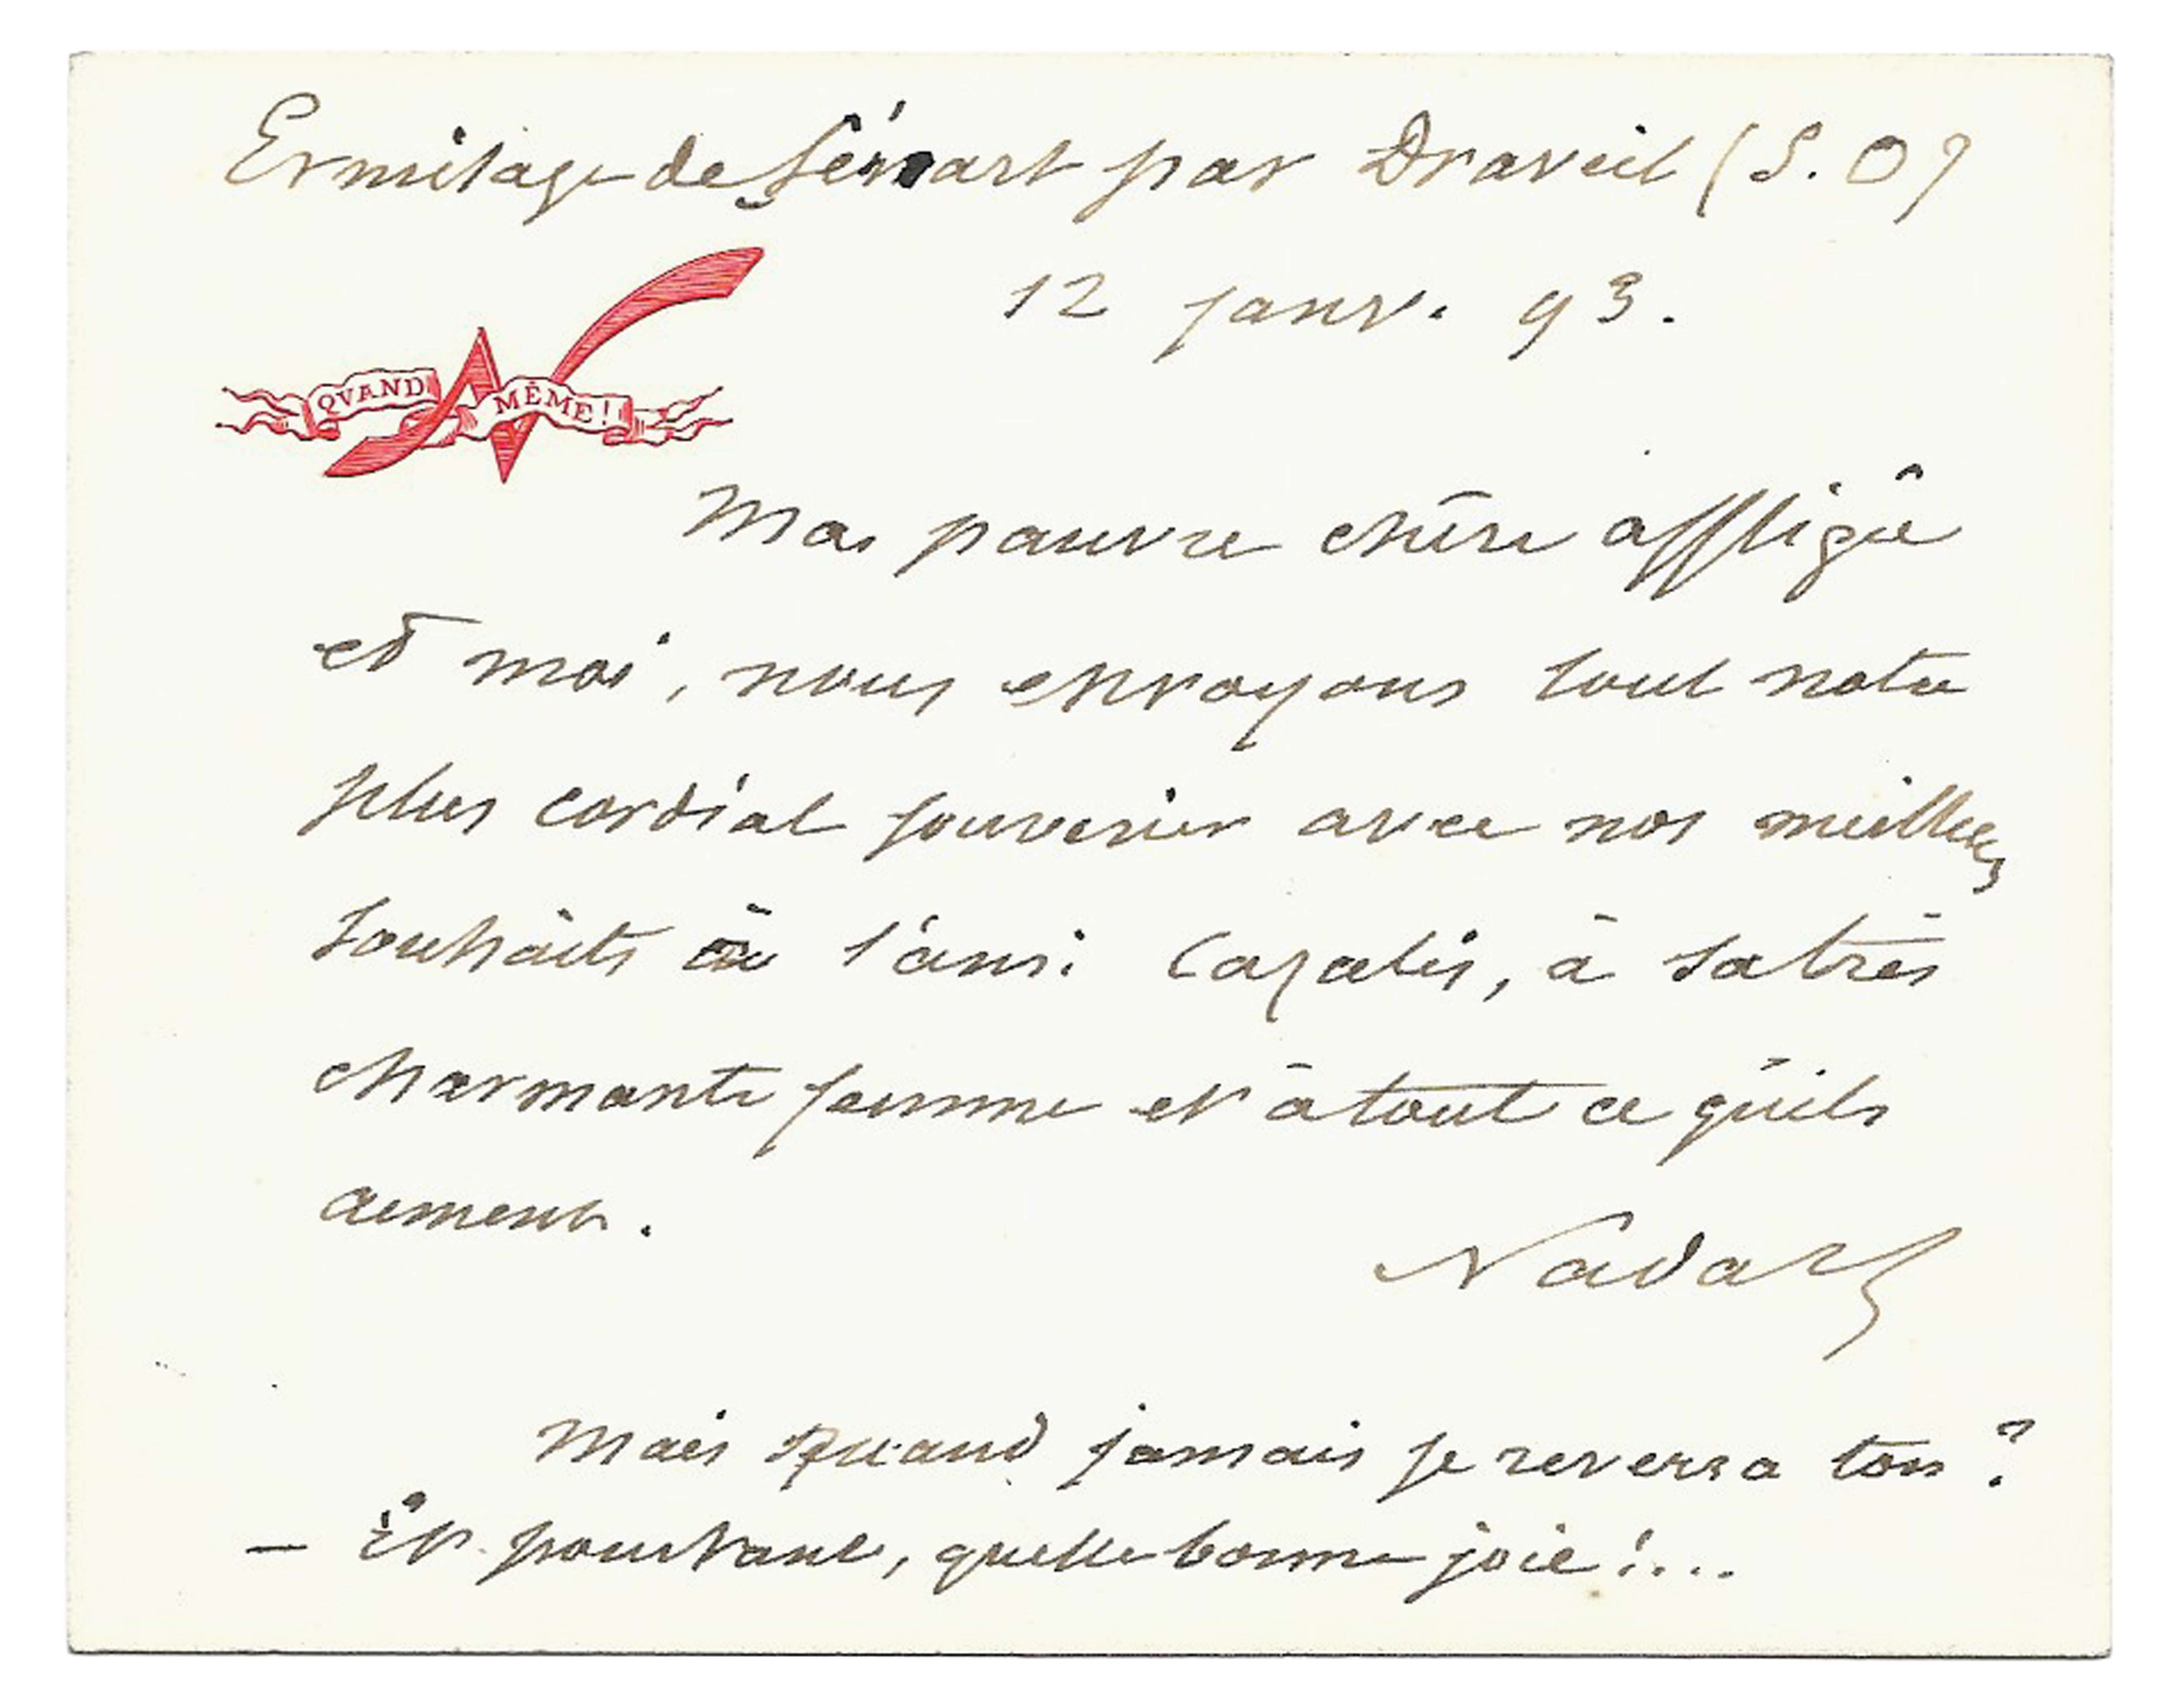 Ermitage de Sénart par Draveil (S. O)
12 janv. 93.
QVAND MÊME!
Ma pauvre chère affligée
et moi, nous envoyons tout notre
plus cordial souvenir avec nos meilleurs
souhaits à l'ami Cazalis, à sa très
charmante femme et à tout ce qu'ils
aiment.
Nadar
Mais quand jamais se reverra t'on ?
— Et pourtant, quelle bonne joie !...